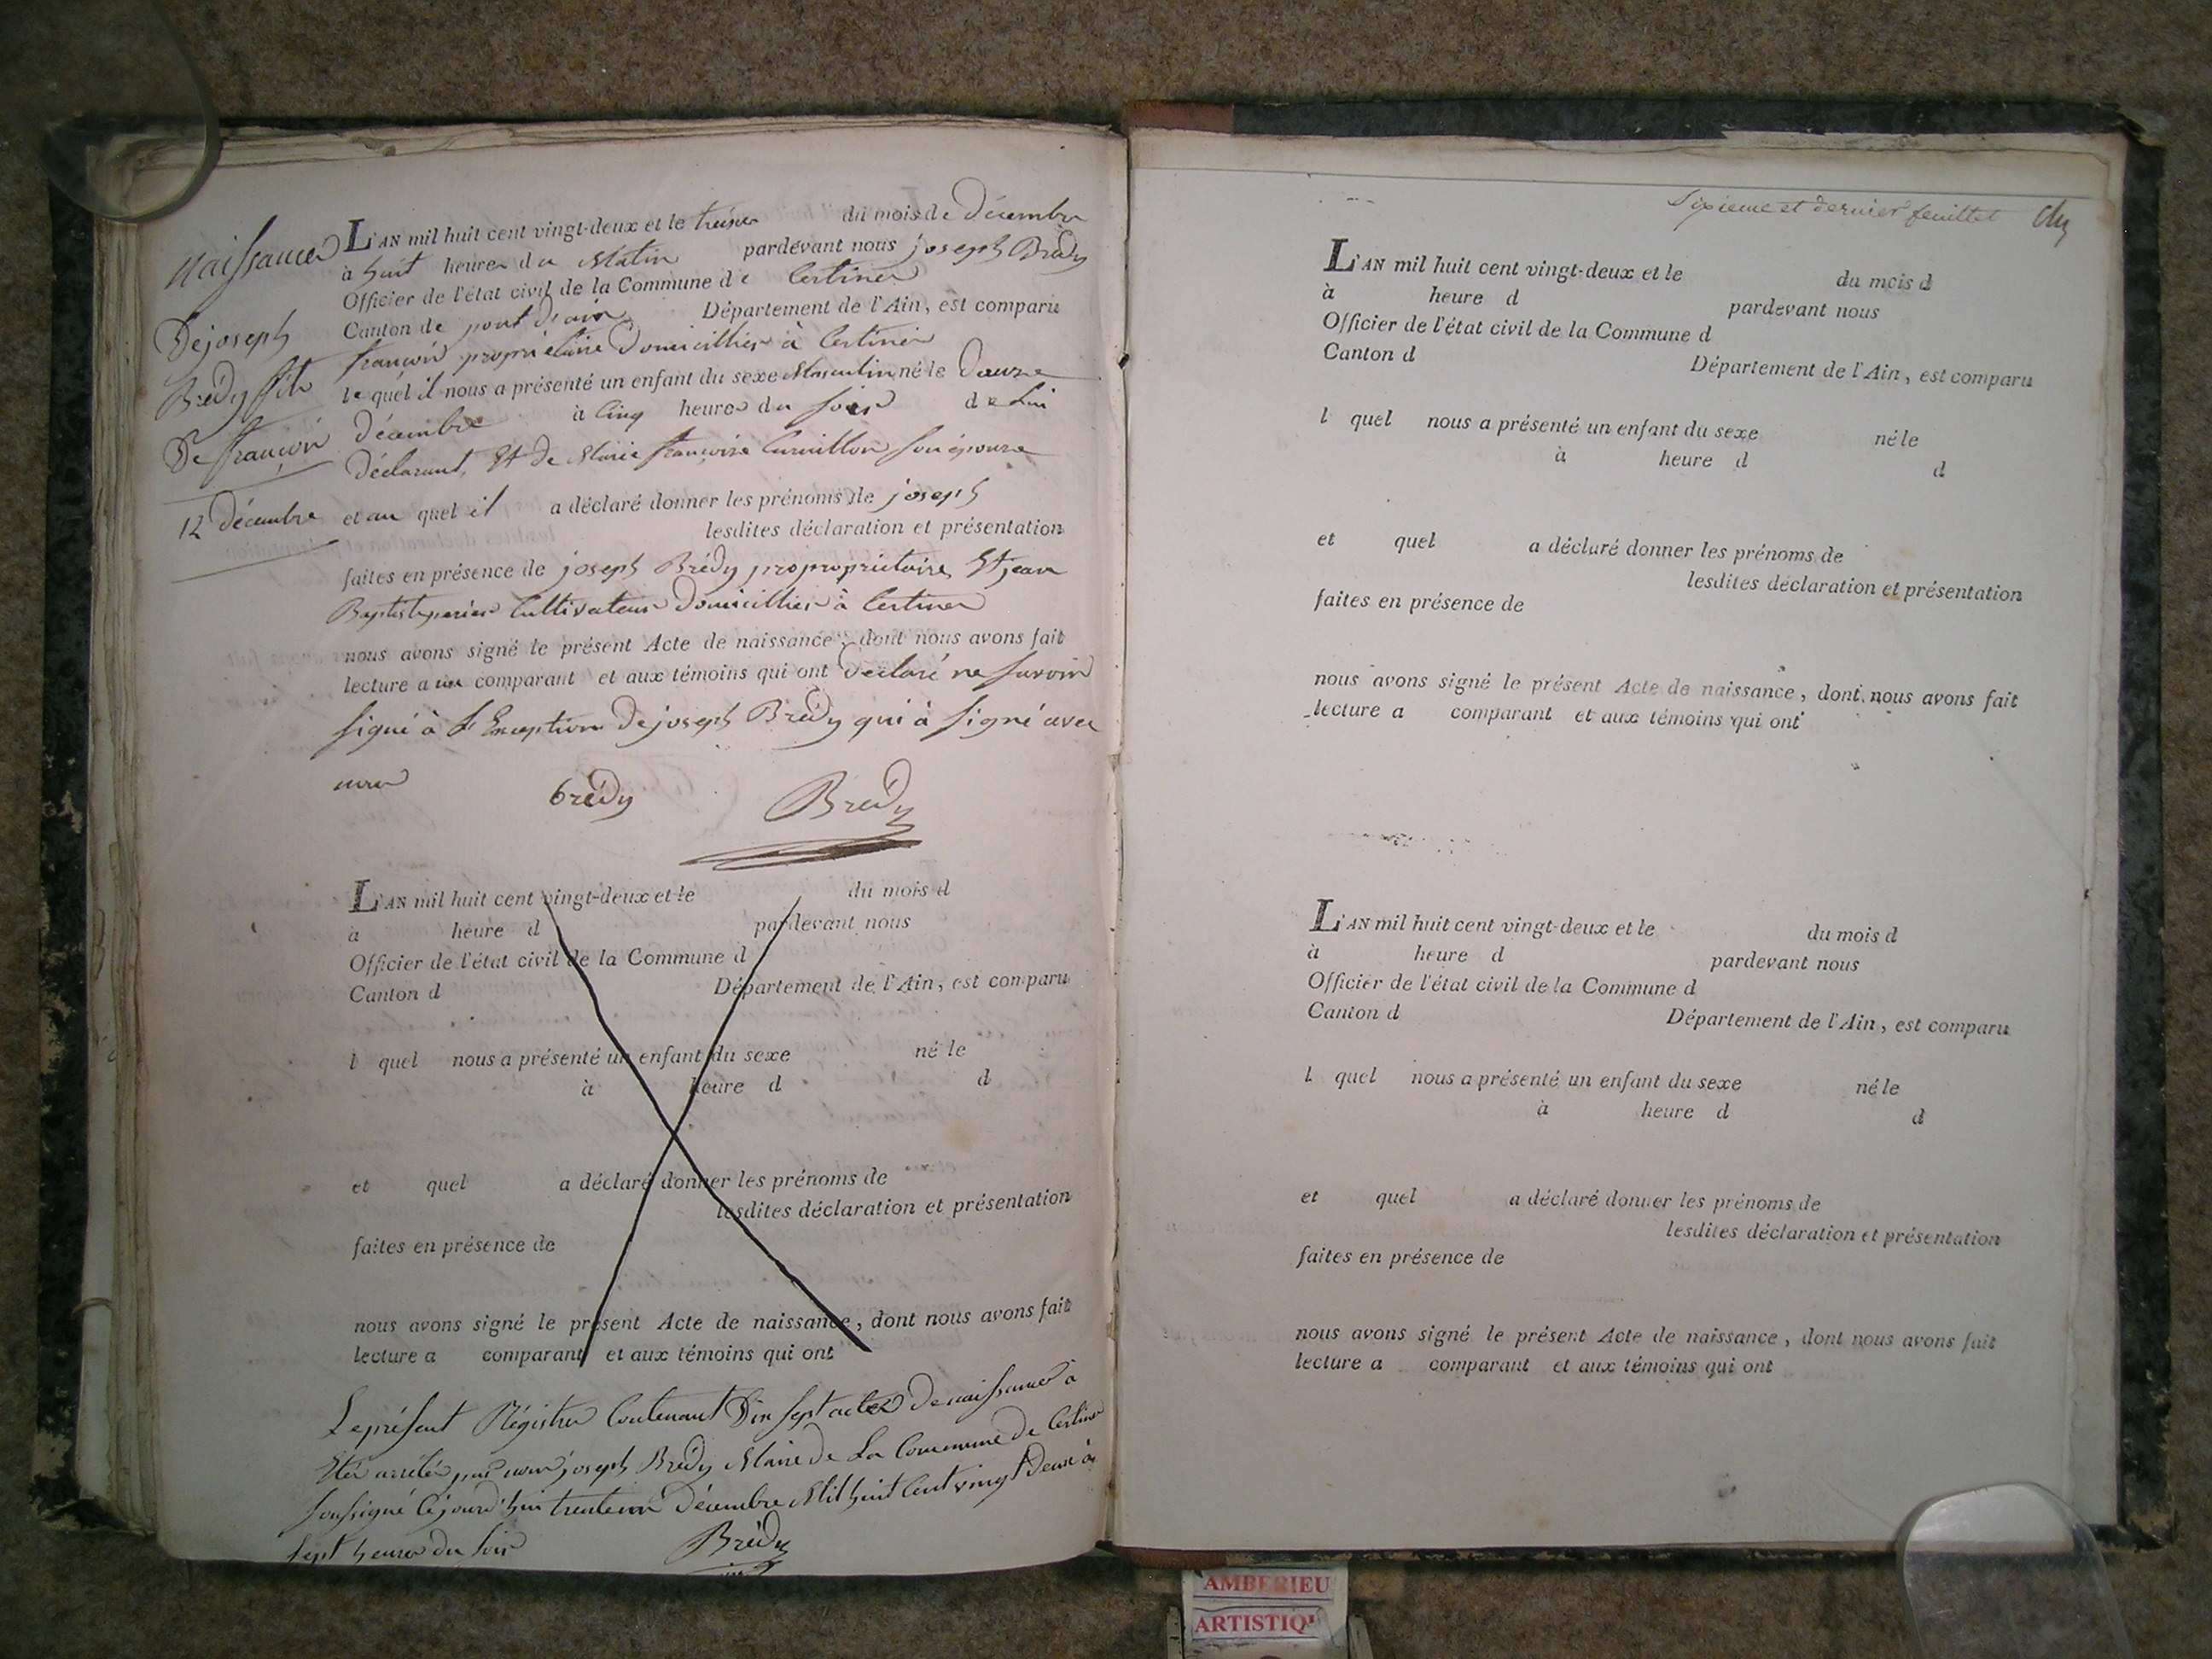 Naissance
De joseph
Brédy fils
De françois
12 décembre
L'AN mil huit cent vingt-deux et le treise du mois de décembre
à huit heures du Matin pardevant nous joseph Brédy
Officier de l'état civil de la Commune de Certines
Canton de pont d'ain Département de l'Ain, est comparu
françois propriétaire Domicillier à Certines
lequel il nous a présenté un enfant du sexe Masculin né le Douze
décembre à Cinq heures du soir de Lui
Déclarant, Et de Marie françoise son épouse
et au quel il a déclaré donner les prénoms de joseph
lesdites déclaration et présentation
faites en présence de joseph Brédy propropriétaire Et jean
Baptiste perier Cultivateur Domicillier à Certines
nous avons signé le présent Acte de naissance, dont nous avons fait
lecture a un comparant et aux témoins qui ont Déclaré ne savoir
signé à L'Exception De joseph Brédy qui à signé avec
nous
brédy Brédy
L'AN mil huit cent vingt-deux et le du mois d
à heure d pardevant nous
Officier de l'état civil de la Commune d
Canton d Département de l'Ain, est comparu
l quel nous a présenté un enfant du sexe né le
à heure d d
et quel a déclaré donner les prénoms de
lesdites déclaration et présentation
faites en présence de
nous avons signé le présent Acte de naissance, dont nous avons fait
lecture a comparant et aux témoins qui ont
Le présent Régistre Contenant Dix sept actes De naissance à
Eté arrêté par moi joseph Brédy Maire de La Commune de Certines
soussigné Cejourd'hui trente un Décembre Mil huit Cent vingt Deux à
sept heures du soir
Brédy
Sixieme et dernier feuillet
L'AN mil huit cent vingt-deux et le du mois d
à heure d pardevant nous
Officier de l'état civil de la Commune d
Canton d Département de l'Ain, est comparu
l quel nous a présenté un enfant du sexe né le
à heure d d
et quel a déclaré donner les prénoms de
lesdites déclaration et présentation
faites en présence de
nous avons signé le présent Acte de naissance, dont nous avons fait
lecture a comparant et aux témoins qui ont
L'AN mil huit cent vingt-deux et le du mois d
à heure d pardevant nous
Officier de l'état civil de la Commune d
Canton d Département de l'Ain, est comparu
l quel nous a présenté un enfant du sexe né le
à heure d d
et quel a déclaré donner les prénoms de
lesdites déclaration et présentation
faites en présence de
nous avons signé le présent Acte de naissance, dont nous avons fait
lecture a comparant et aux témoins qui ont
AMBERIEU
ARTISTIQU